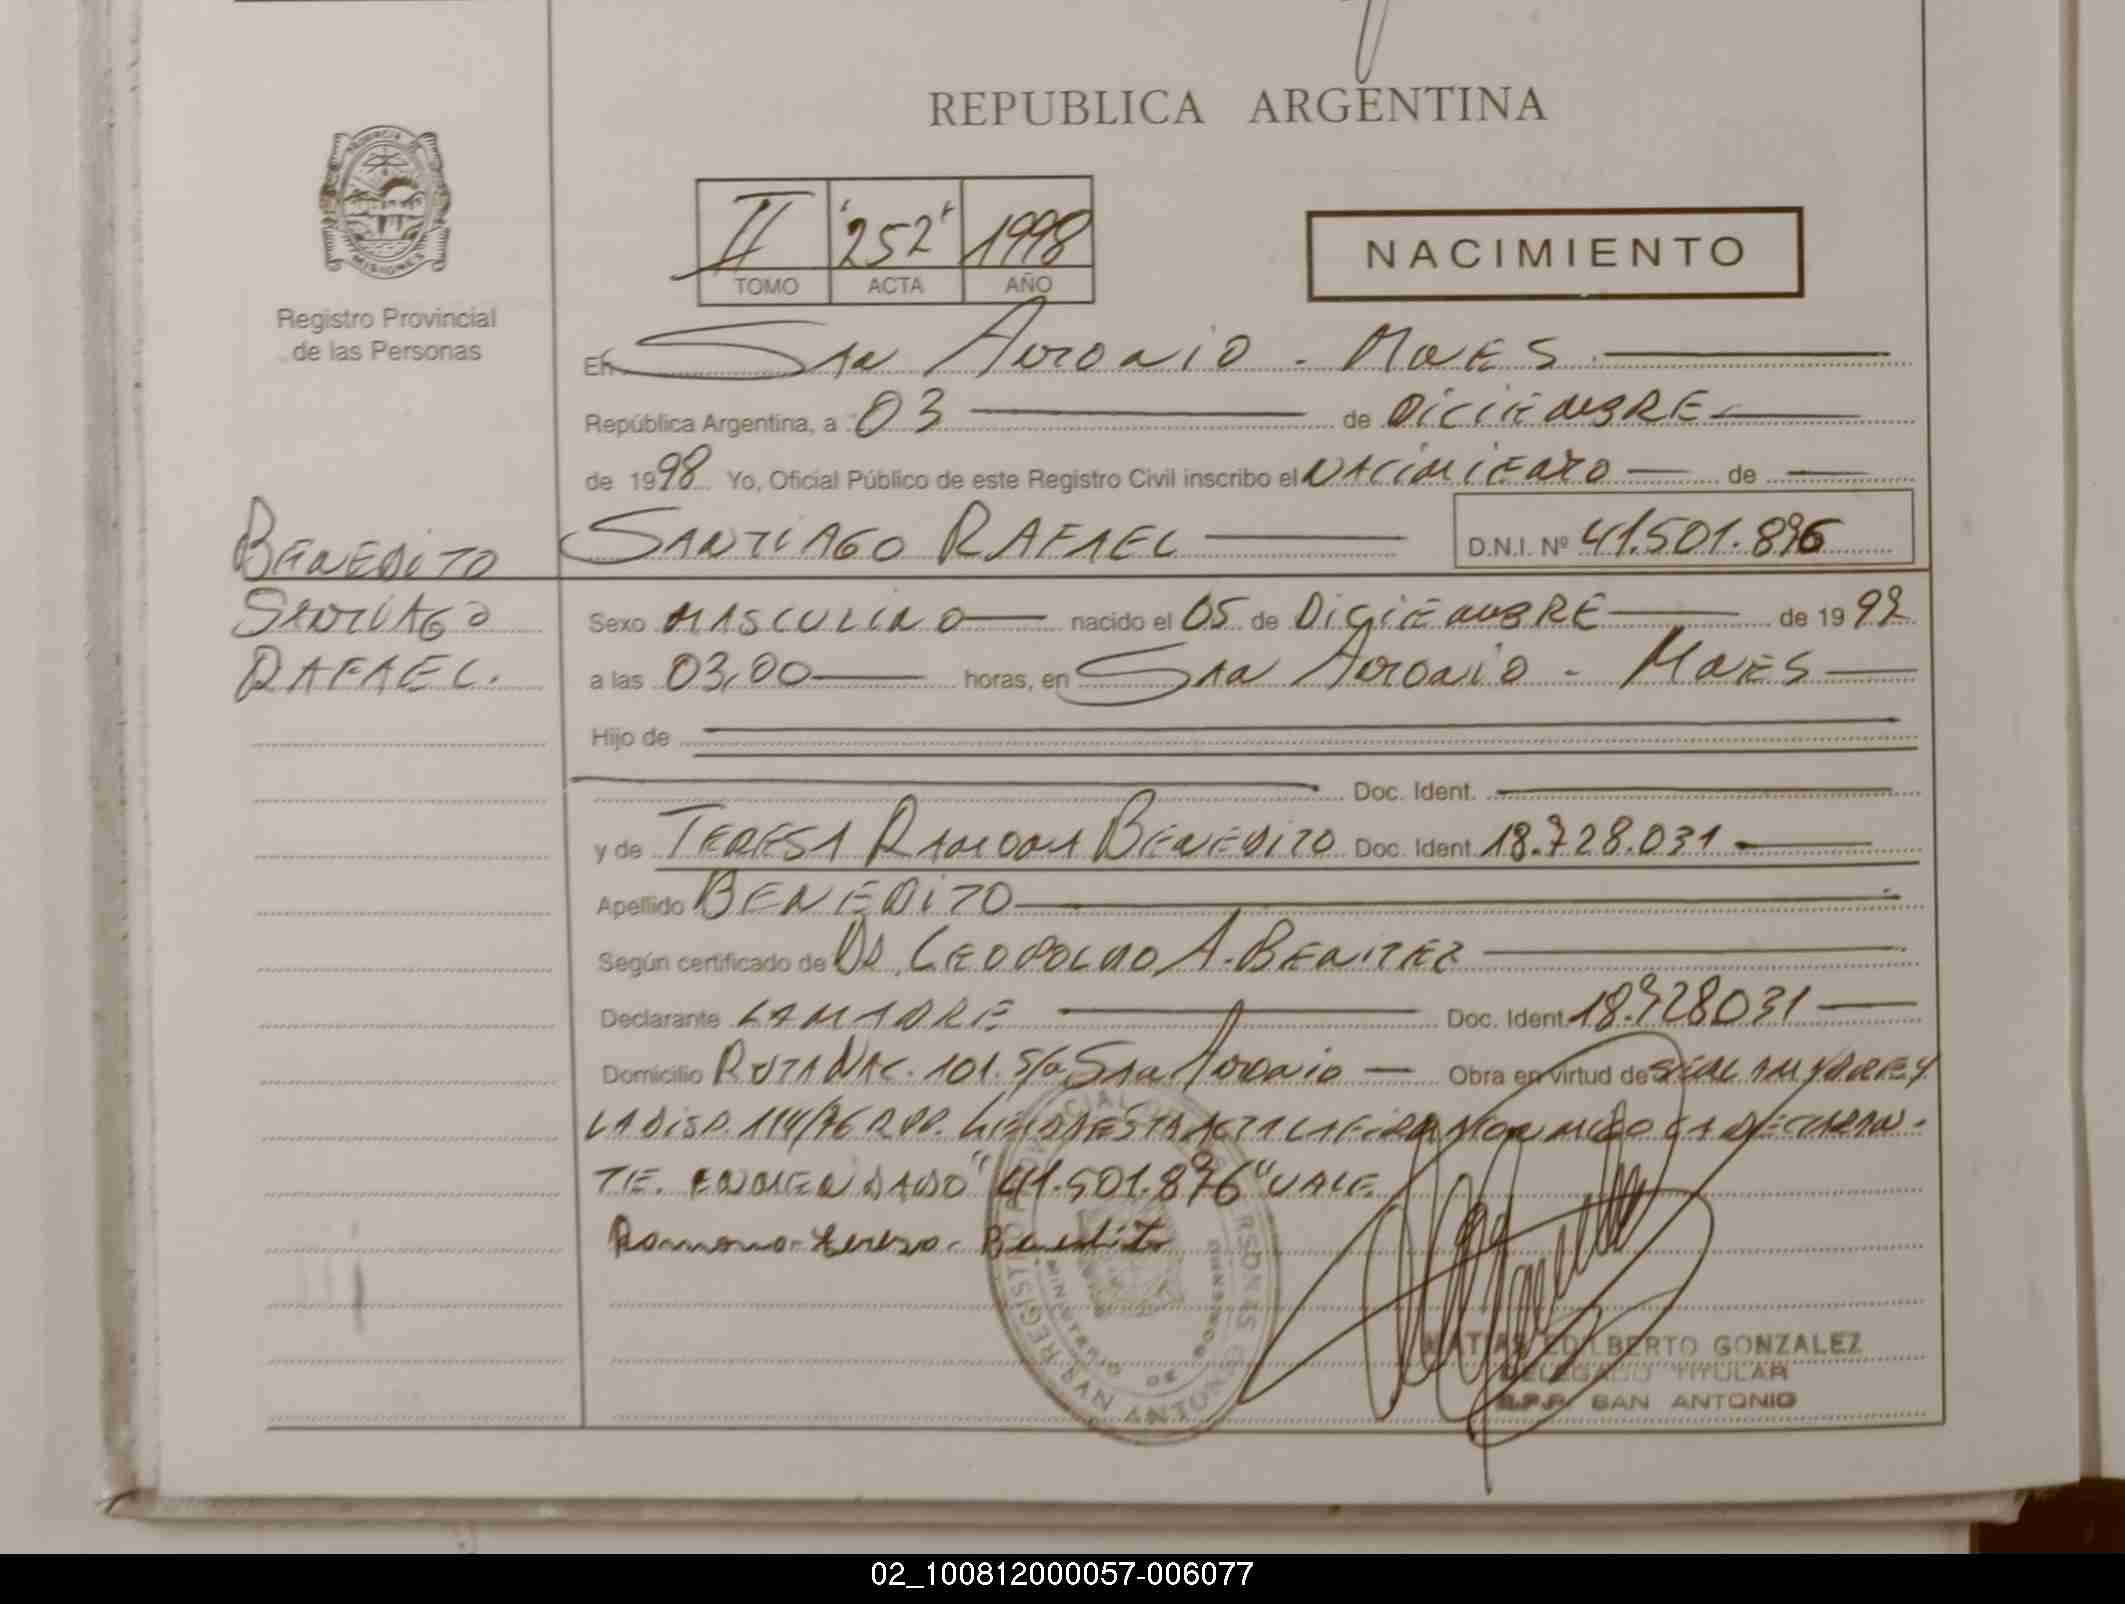 REPUBLICA ARGENTINA
PROVINCIA DE
MISIONES
Registro Provincial
de las Personas
II 252 1998
TOMO ACTA AÑO
NACIMIENTO
En San Antonio - Mnes
República Argentina, a 03 de DICIEMBRE
de 1998 Yo, Oficial Público de este Registro Civil inscribo el NACIMIENTO de
SANTIAGO RAFAEL D.N.I. Nº 41.501.896
BENEDITO
SANTIAGO
RAFAEL.
Sexo MASCULINO nacido el 05 de DICIEMBRE de 1992
a las 03,00 horas, en San Antonio - Mnes
Hijo de
Doc. Ident.
y de TERESA RAMONA BENEDITO Doc. Ident. 18.728.031
Apellido BENEDITO
Según certificado de DR. LEOPOLDO A. BENITEZ
Declarante LA MADRE Doc. Ident. 18.728031
Domicilio RUTA NAC. 101. S/n San Antonio Obra en virtud de
LA DISP. 114/76 ESTA ACTA LA DECLARAN-
TE. ENMENDADO "41.501.896" VALE
Ramona Teresa Benedito
REGISTRO PROVINCIAL DE LAS PERSONAS
MINISTERIO DE GOBIERNO
SAN ANTONIO
MATIAS EDILBERTO GONZALEZ
DELEGADO TITULAR
R.P.P. SAN ANTONIO
02_100812000057-006077